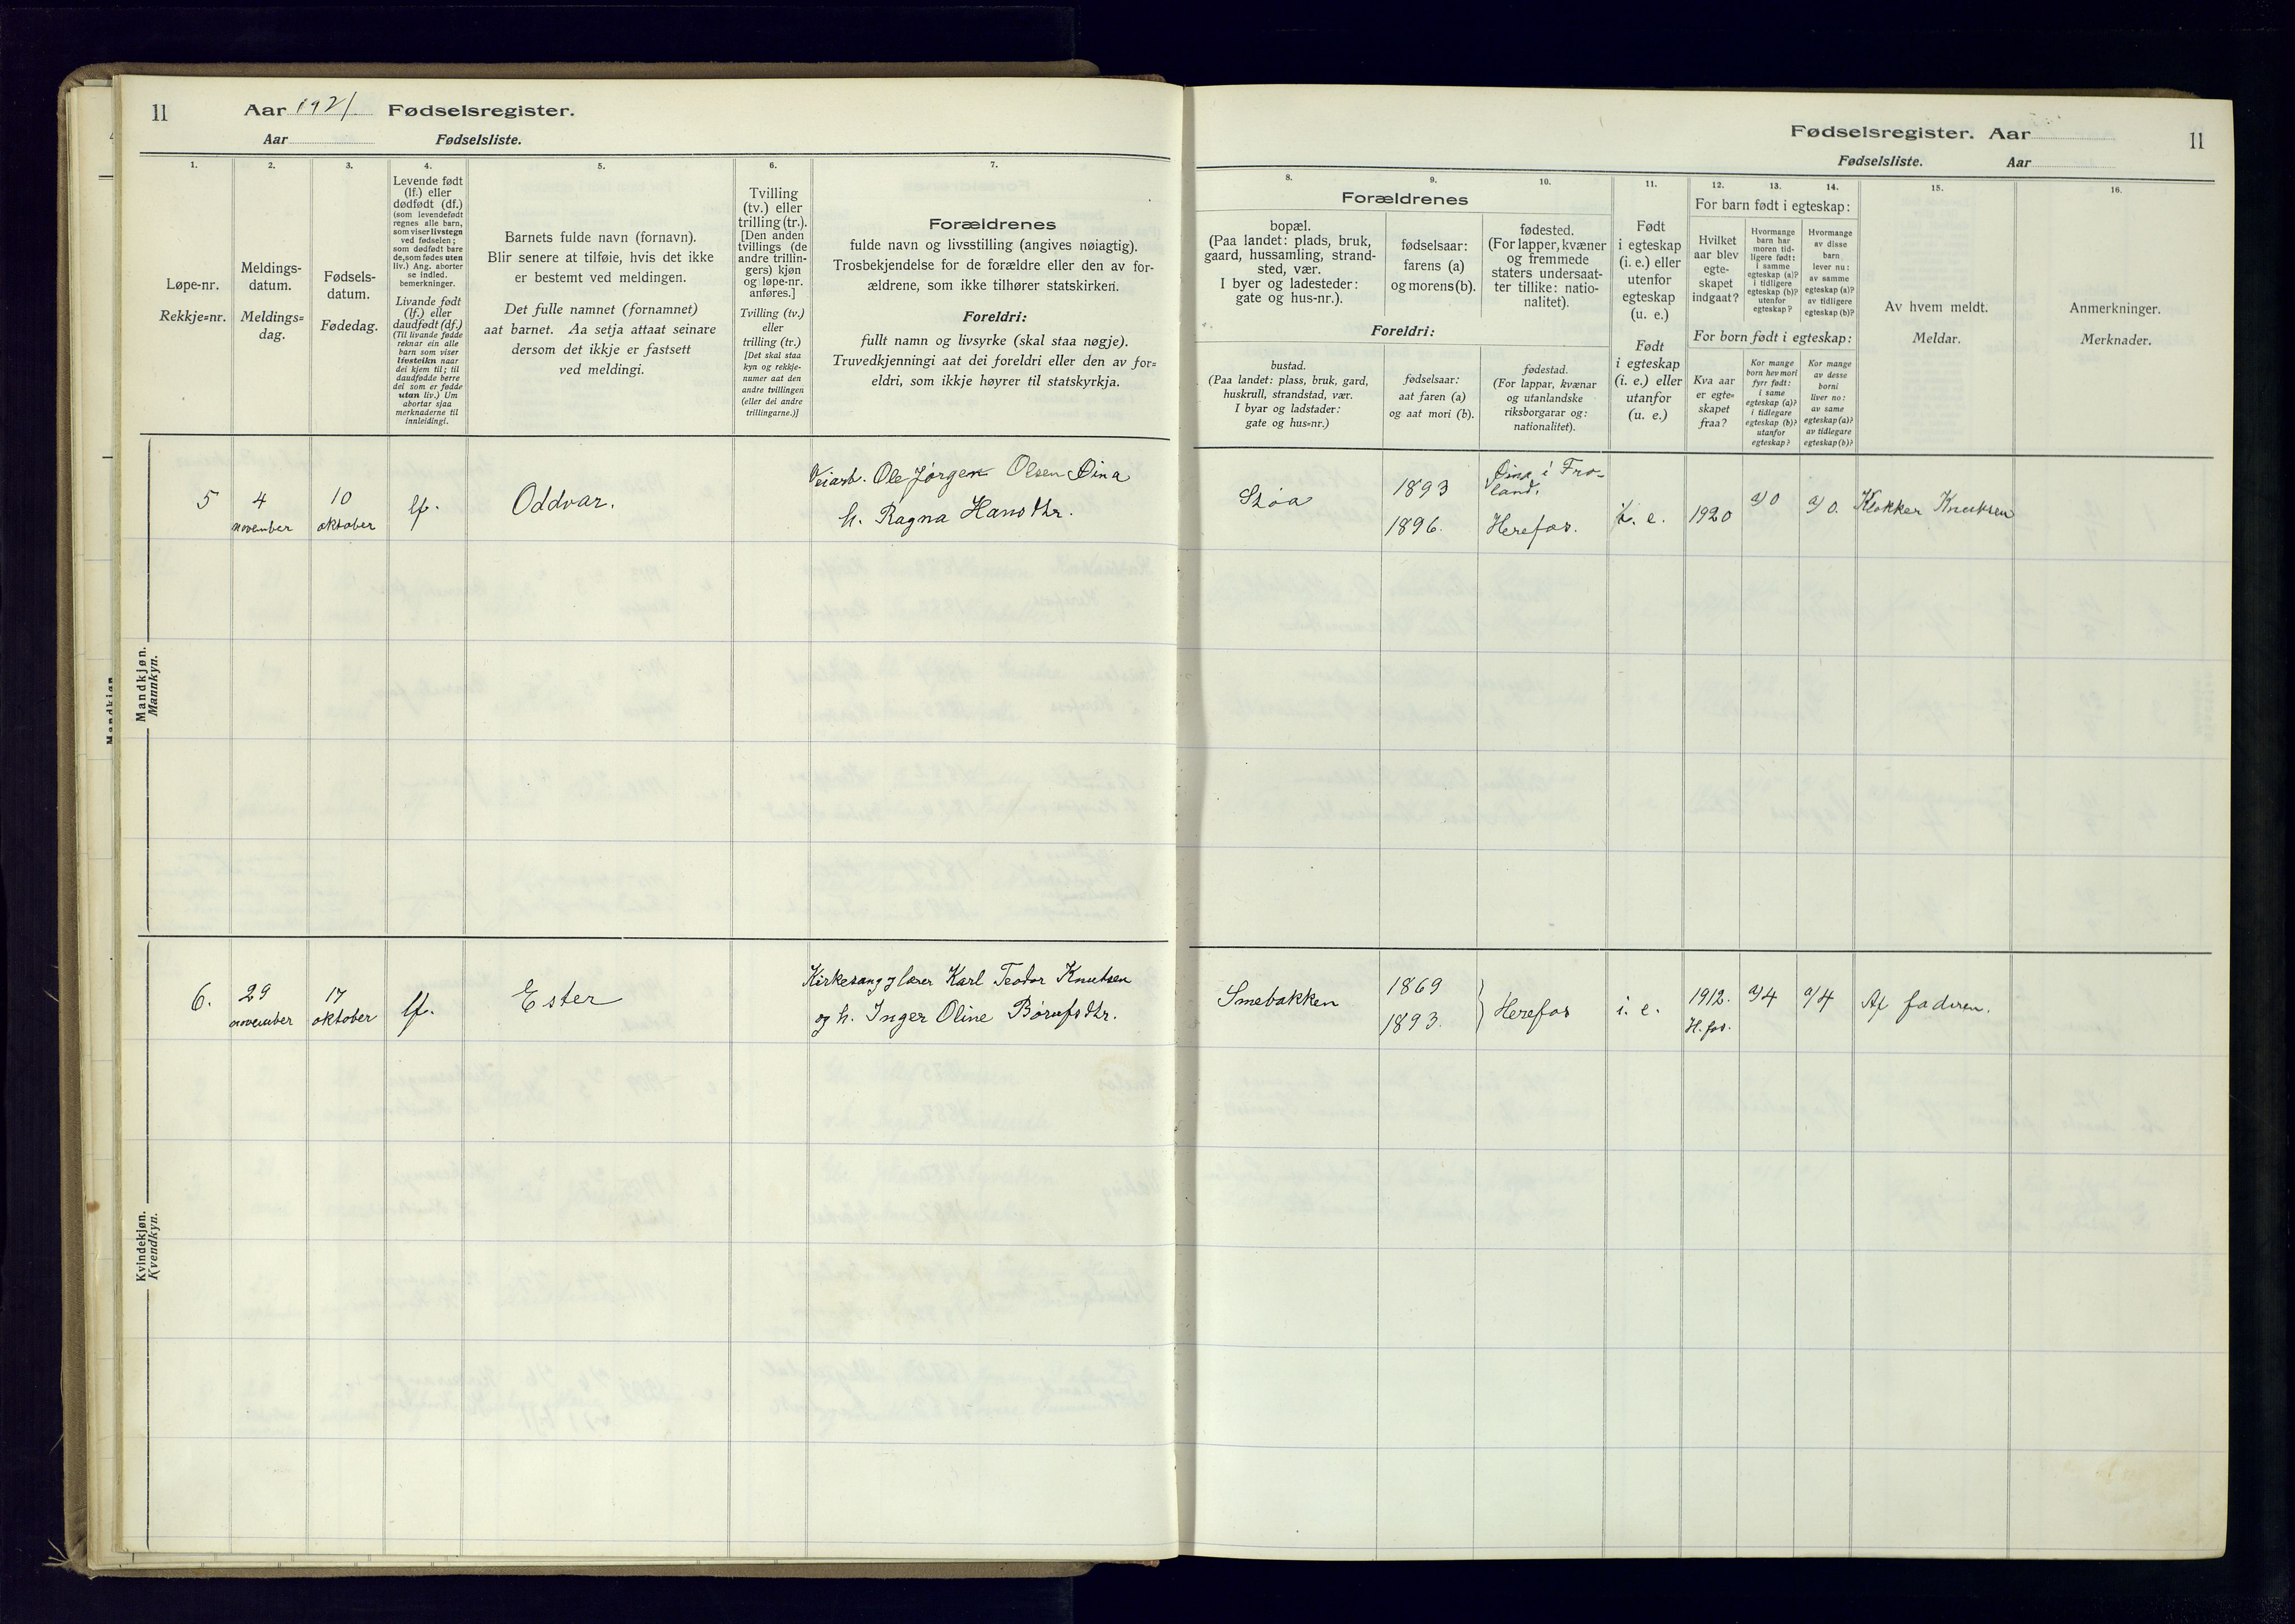 11
Aar 1921 Fødselsregister.
Aar Fødselsliste.
1.
2.
3.
4.
5.
6.
7.
Løpe-nr.
Rekkje=nr.
Meldings-
datum.
Meldings=
dag.
Fødsels-
datum.
Fødedag.
Levende født
(lf.) eller
dødfødt (df.)
(som levendefødt
regnes alle barn,
som viser livstegn
ved fødselen;
som dødfødt bare
de, som fødes uten
liv.) Ang. aborter
se indled.
bemerkninger.
Livande født
(lf.) eller
daudfødt (df.)
(Til livande fødde
reknar ein alle
barn som viser
livsteikn naar
dei kjem til; til
daudfødde berre
dei som er fødde
utan liv.) Um
abortar sjaa
merknaderne til
innleidingi.
Barnets fulde navn (fornavn).
Blir senere at tilføie, hvis det ikke
er bestemt ved meldingen.
Det fulle namnet (fornamnet)
aat barnet. Aa setja attaat seinare
dersom det ikkje er fastsett
ved meldingi.
Tvilling
(tv.) eller
trilling (tr.).
[Den anden
tvillings (de
andre trillin-
gers) kjøn
og løpe-nr.
anføres.]
Tvilling (tv.)
eller
trilling (tr.)
[Det skal staa
kyn og rekkje-
numer aat den
andre tvillingen
(eller dei andre
trillingarne.)]
Forældrenes
fulde navn og livsstilling (angives nøiagtig).
Trosbekjendelse for de forældre eller den av for-
ældrene, som ikke tilhører statskirken.
Foreldri:
fullt namn og livsyrke (skal staa nøgje).
Truvedkjenningi aat dei foreldri eller den av for=
eldri, som ikkje høyrer til statskyrkja.
Mandkjøn.
Mannkyn.
5
4
november
10
oktober
lf.
Oddvar.
Veiarb. Ole Jørgen Olsen Øina
h. Ragna Hansdtr.
Kvindekjøn.
Kvendkyn.
6.
29
november
17
oktober
lf.
Ester
Kirkesang. og lærer Karl Teodor Knutsen
og h. Inger Oline Børufsdtr.
Fødselsregister. Aar
11
Fødselsliste. Aar
8.
9.
10.
11.
12.
13.
14.
15.
16.
Forældrenes
bopæl.
(Paa landet: plads, bruk,
gaard, hussamling, strand-
sted, vær.
I byer og ladesteder:
gate og hus-nr.).
fødselsaar:
farens (a)
og morens (b).
fødested.
(For lapper, kvæner
og fremmede
staters undersaat-
ter tillike: natio-
nalitet).
Foreldri:
bustad.
(Paa landet: plass, bruk, gard,
huskrull, strandstad, vær.
I byar og ladstader:
gate og hus=nr.)
fødselsaar:
aat faren (a)
og aat mori (b).
fødestad.
(For lappar, kvænar
og utanlandske
riksborgarar og:
nationalitet).
Født
i egteskap
(i. e.) eller
utenfor
egteskap
(u. e.)
Født
i egteskap
(i. e.) eller
utanfor
(u. e.)
For barn født i egteskap:
Hvilket
aar blev
egte-
skapet
indgaat?
Hvormange
barn har
moren tid-
ligere født:
i samme
egteskap (a)?
i tidligere
egteskap (b)?
utenfor
egteskap?
Hvormange
av disse
barn
lever nu:
av samme
egteskap (a)?
av tidligere
egteskap (b)?
For born født i egteskap:
Kva aar
er egte=
skapet
fraa?
Kor mange
born hev mori
fyrr født:
i same
egteskap (a)?
i tidlegare
egteskap (b)?
utanfor
egteskap?
Kor mange
av desse
borni
liver no:
av same
egteskap (a)?
av tidlegare
egteskap (b)?
Av hvem meldt.
Meldar.
Anmerkninger.
Merknader.
Støa
1893
1896.
Øina i Fro-
land.
Herefos.
i. e.
1920
a) 0
a) 0.
Klokker Knutsen
Smebakken
1869
1893.
Herefos
i. e.
1912.
H.fos.
a) 4
a) 4
Af faderen.